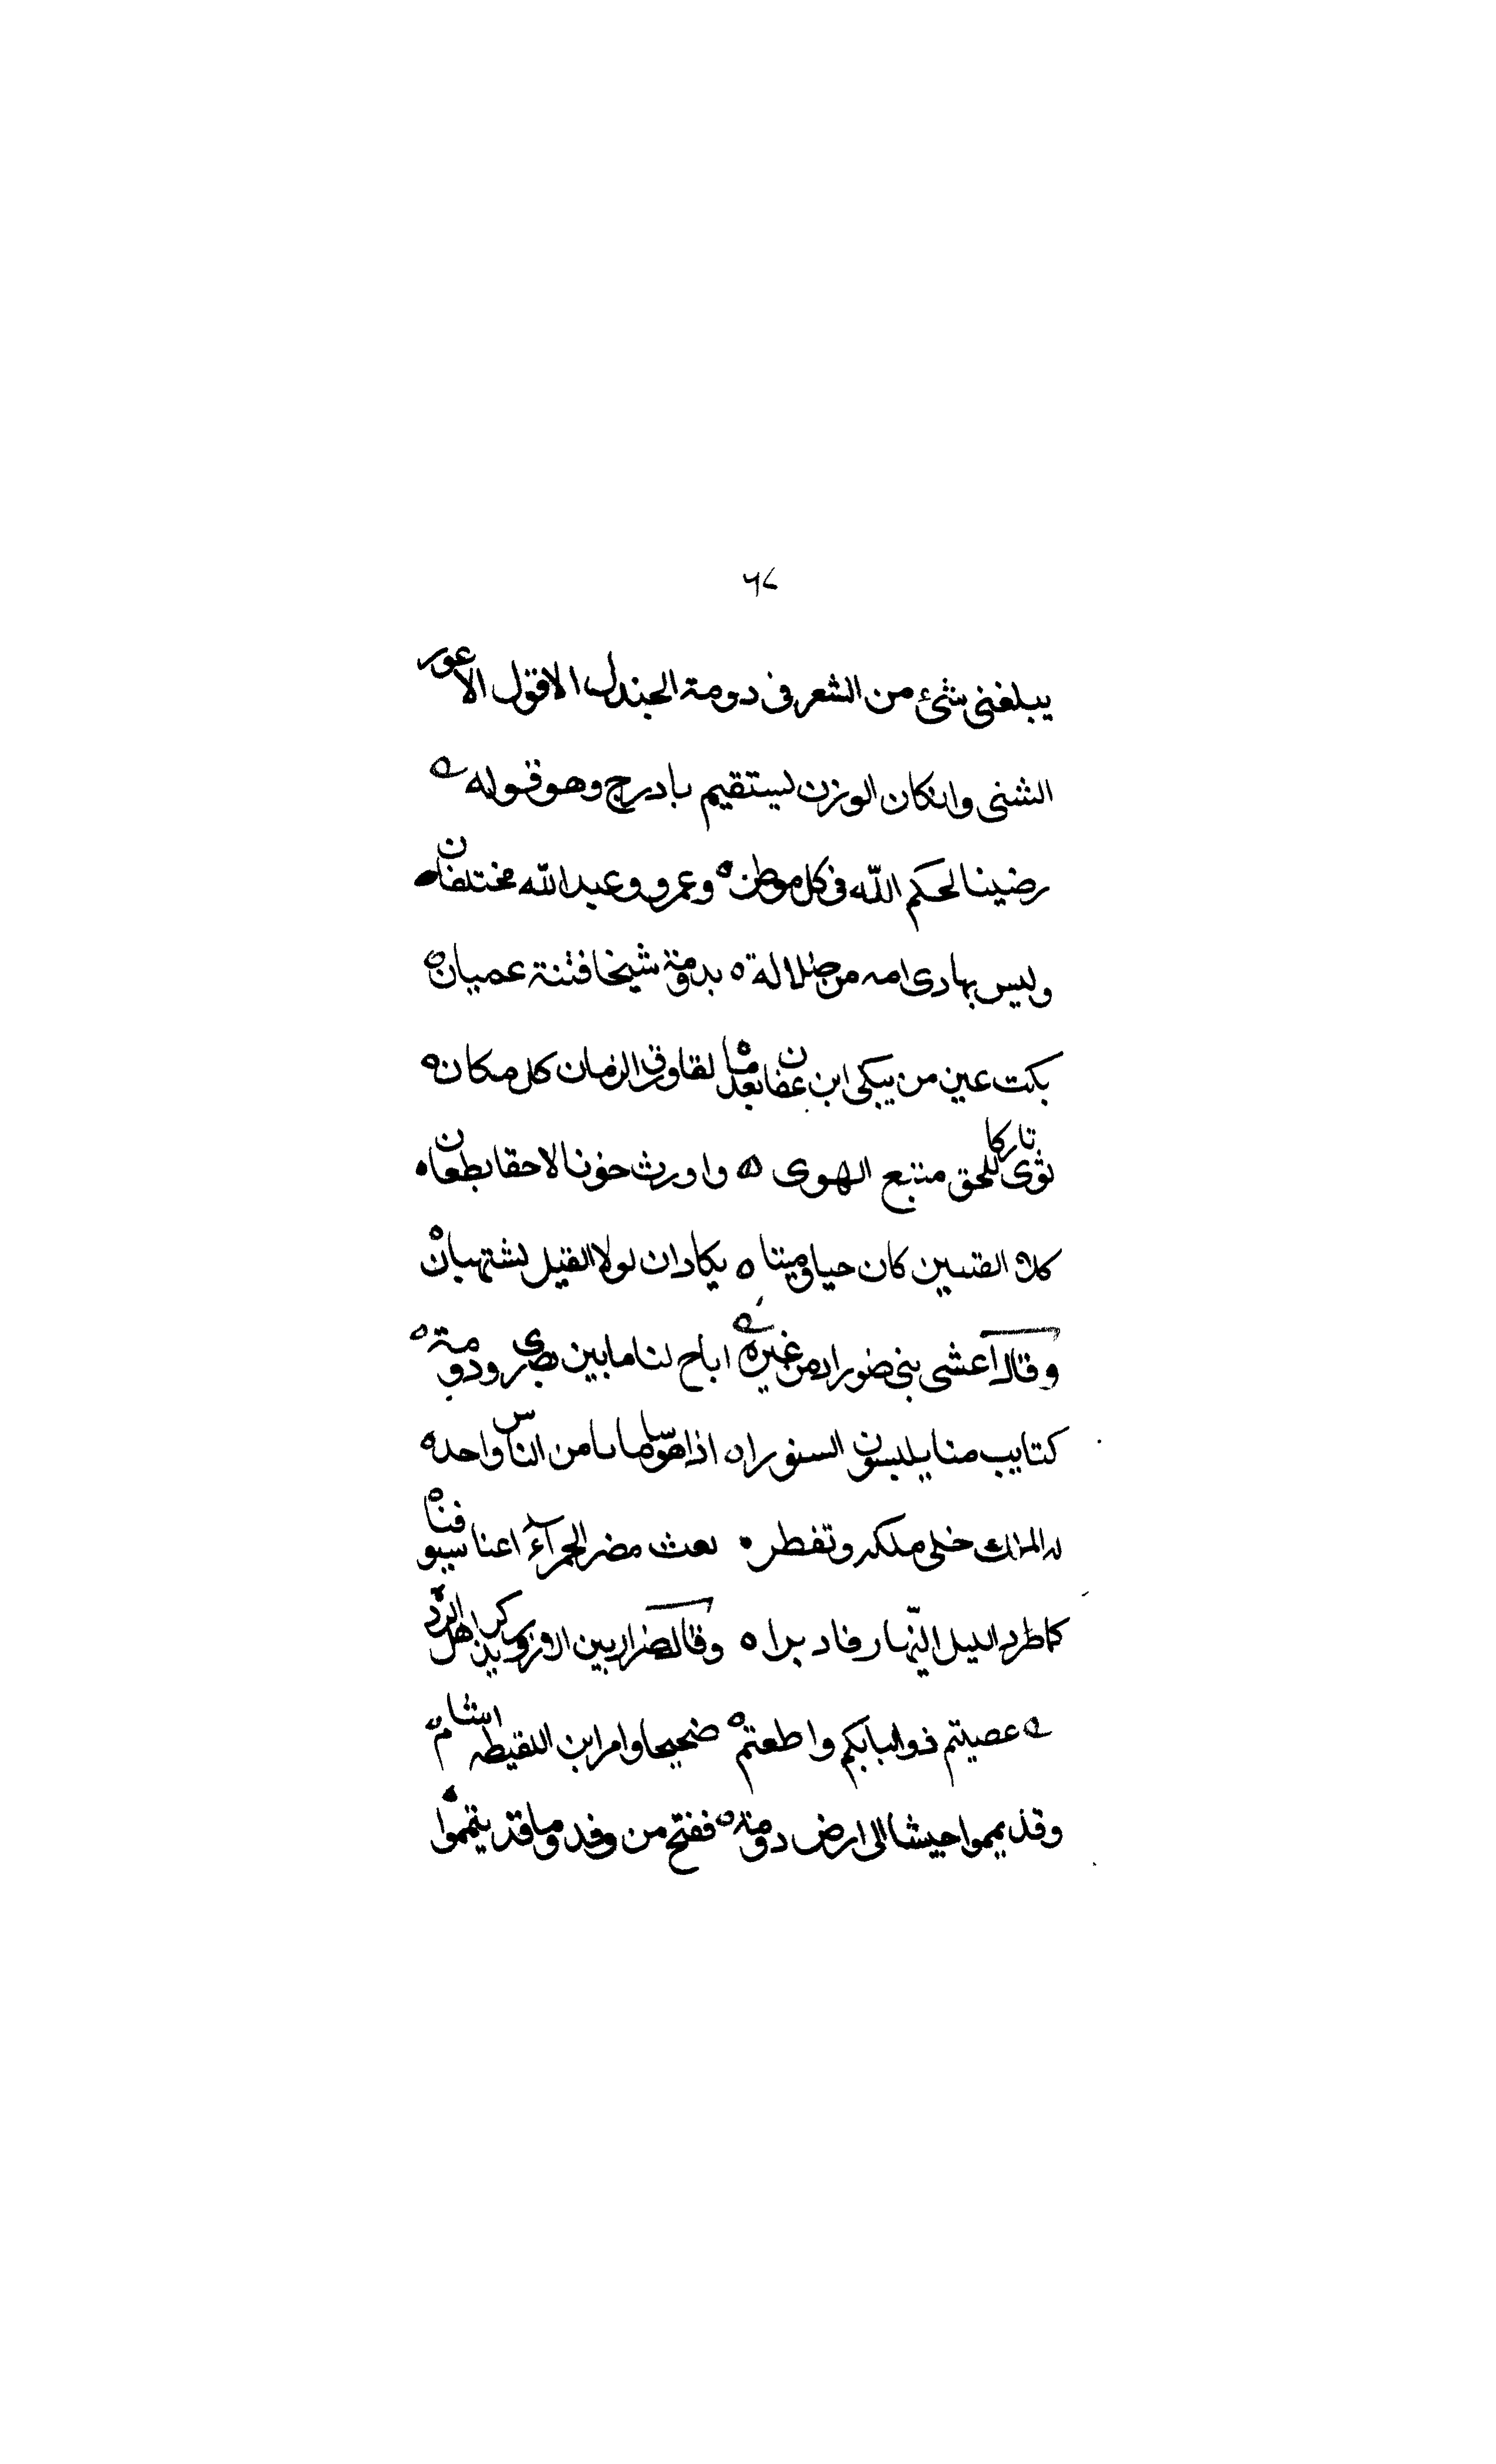 ٦٧
يبلغنى شئ من الشعر فى دومة الجندل الا قول الاعور
الشنى وانكان الوزن ليستقيم بادرج وهو قوله
رضينا لحكم الله فى كل موطن ه وعمرو وعبد الله مختلفان ه
وليس بهادى امه من ضلالة ه بدومة شيخا فتنة عميان ه
بكت عين من يبكى ابن عفان بعدما ه لقا ورق الزمان كل مكان ه
ثوى تاركا للحق متبع الهوى ه واورث حزنا لاحقا بطعان ه
كلا الفتنين كان حيا وميتا ه يكادان لولا القيل يشتبهان ه
وقال اعشى بنى ضور من غيره اباح لنا ما بين بصرى ودومة ه
كتايب منا يلبسون السنورا ه اذا من الناس واحد ه
له الملك خلى ملكه وتفطر ه نعت مضر الحمرآء اعنا سيوفنا ه
كما طرد الليل النهار فادبرا ه وقال ضرار بين الازور يذكر اهل الرد
عصيتم ذو البابكم واطعتم ه ضحيحا وامر ابن اللقيطه اشام
وقد يمموا جيشا الى ارض دومة ه ففتح من وفد وما قد يتمموا ه